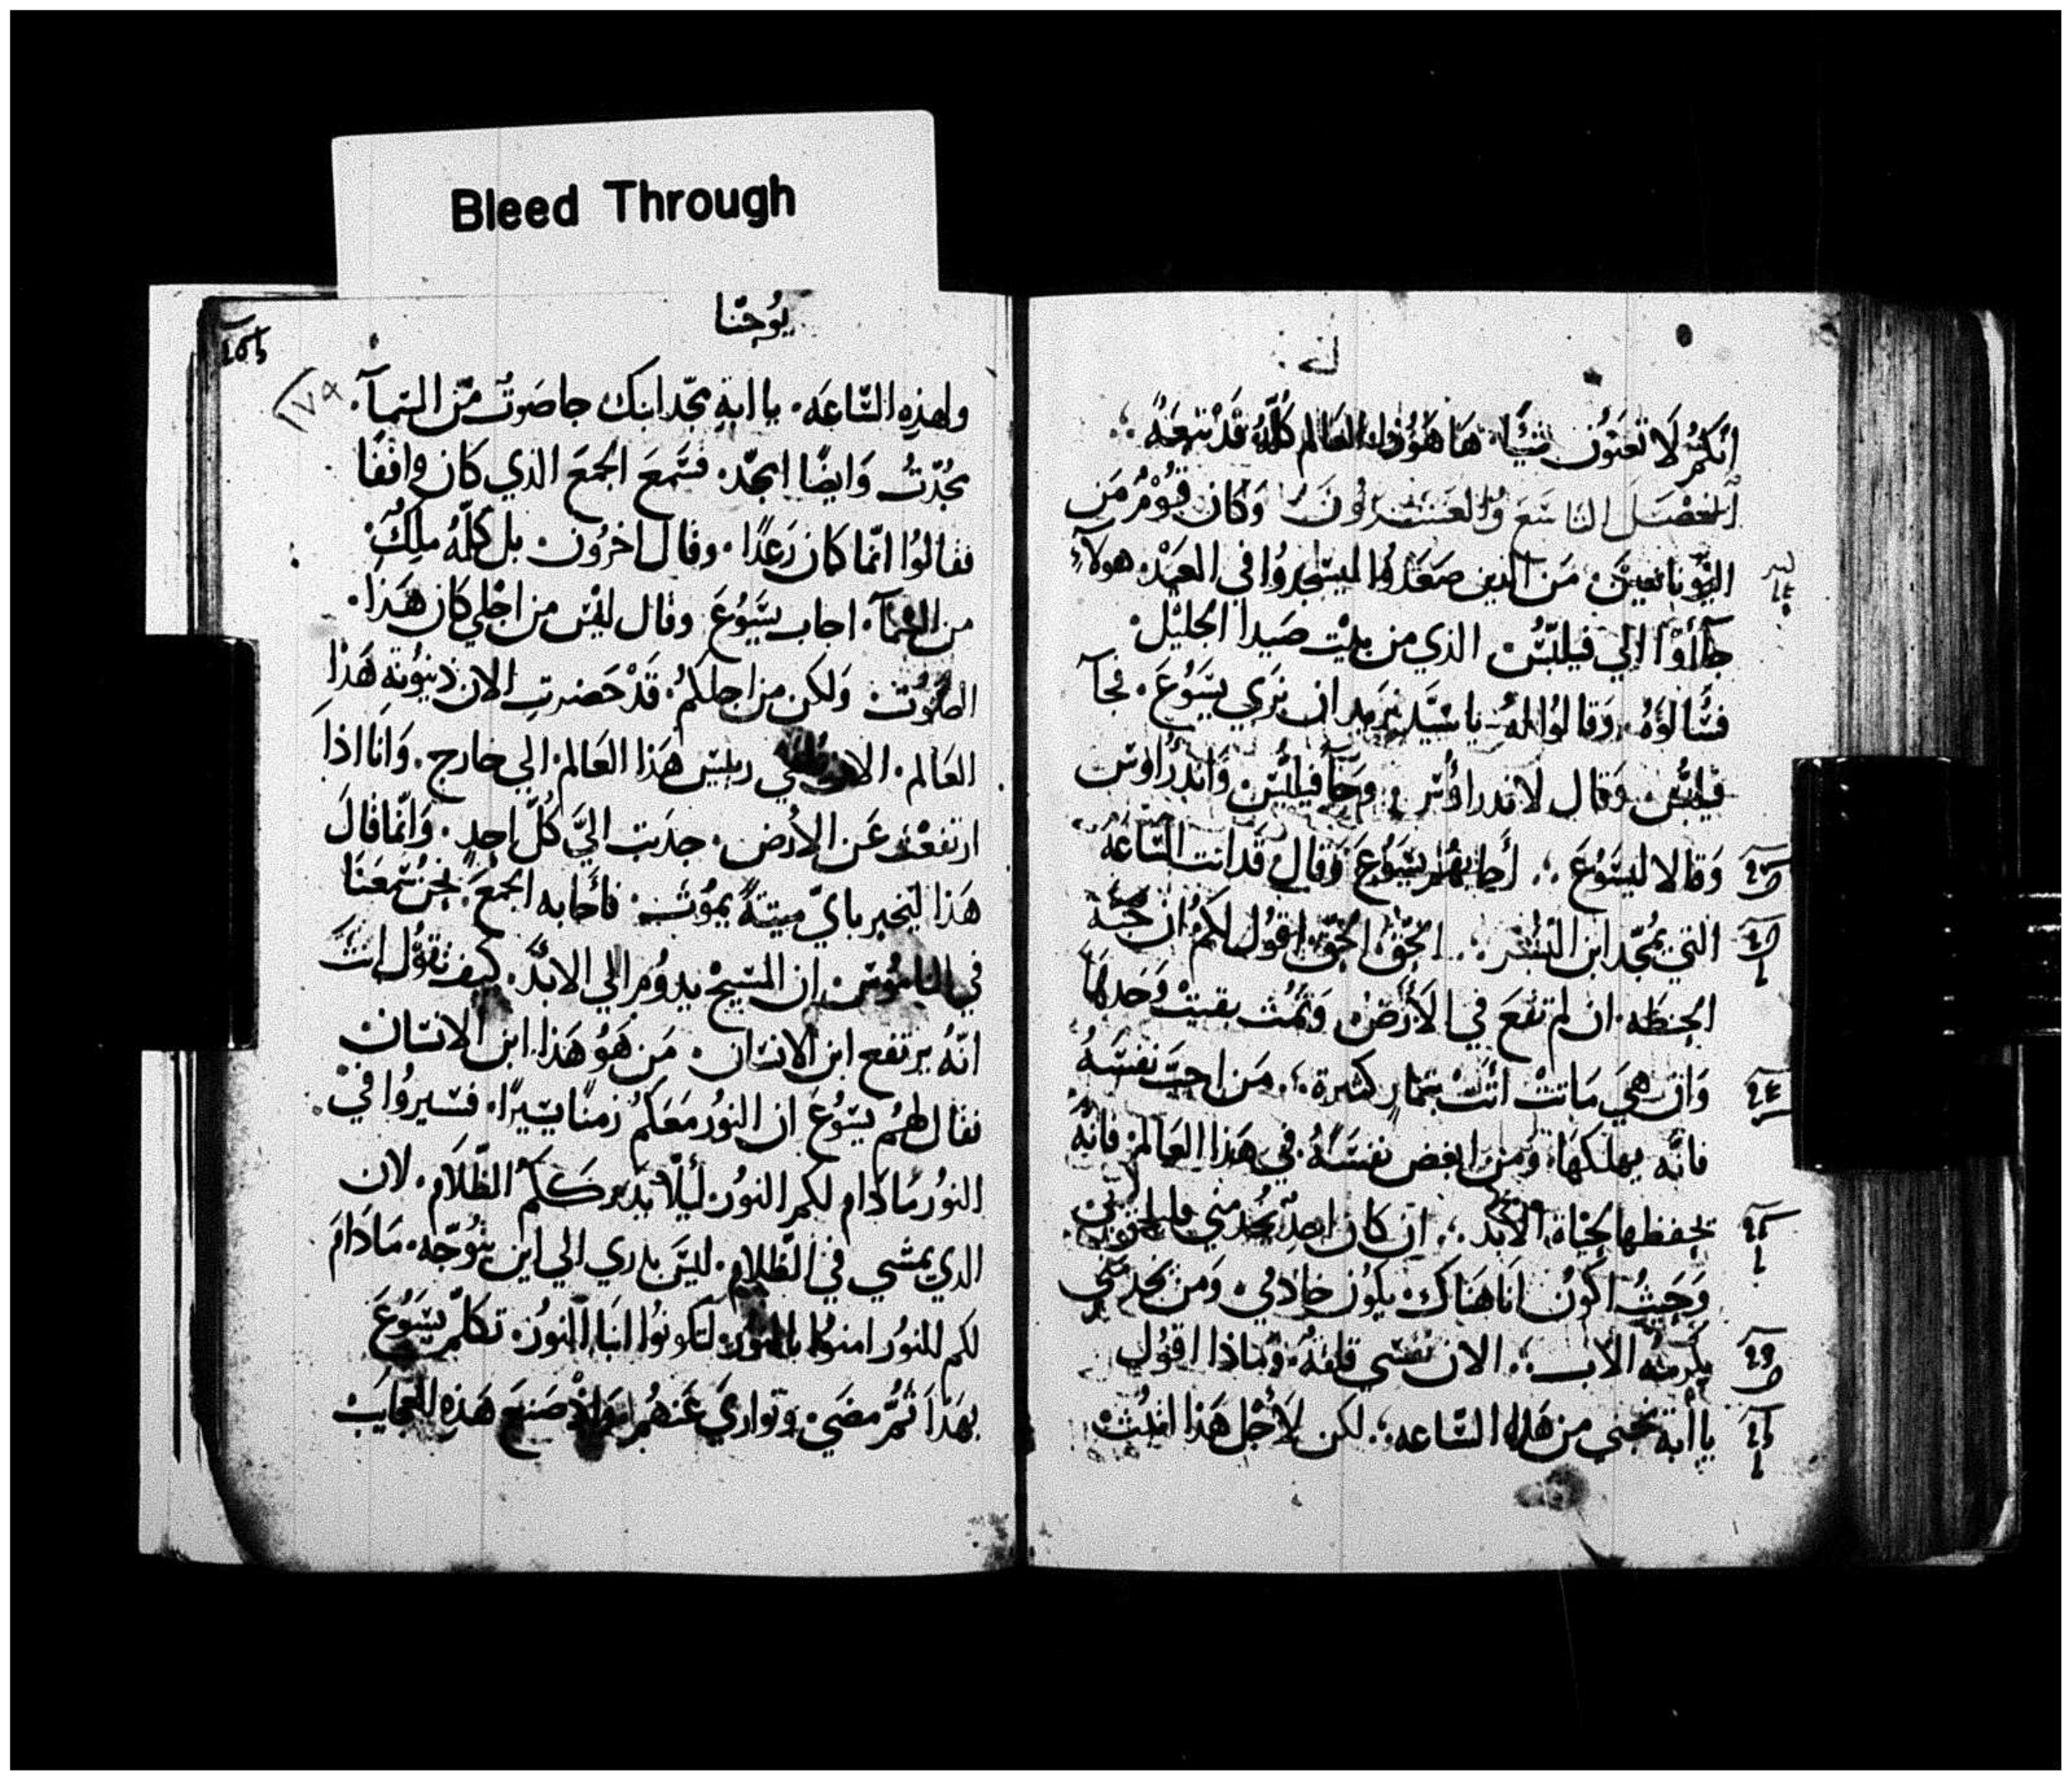 Bleed Through
انكم لا تعنون شيًا. هَا هُوَذا العَالم كُلّهُ قَدْ تبعَهُ
الفصَل التاسَع وُالعشرُونَ وَكان قوْمُ مَن
اليُونانيين مَن الذين صَعَدُوا ليسَجدُوا في العيَد. هولآء
جآأوْا الي فيلبُّس الذي من بيْت صَيدا الجليْل
فسَّالوُهُ وَقالوُا لهُ يا سَيّد نريد ان نرَي يسَوُعَ. فجآ
فيلبُّس وَقال لاندراوُس. وَجَآ فيلبُّس وَاندرَاوس
وَقالا ليسَوُعَ. أجابهُم يسَوُعَ وَقال قَد اتت السَّاعَهُ
التي يمُجّد ابن البشر. الحَقّ الحَقّ اقوُل لكمُ ان حَبّة
الحِنطَه. ان لم تقعَ في الأرَضْ وَتمُت بقيتْ وَحَدهَا
وَان هيَ مَاتتْ أتت بثمَار كثيرة. مَن احَبّ نفسَهُ
فانّه يهلكهَا. وَمَن ابغض نفسَهُ في هَذا العَالم فانّهُ
يحفظها لحيَاة الأبد. ان كان احدٌ يخدمني فليلحَق بي
وَحَيثُ اكوُن انا هنَاك يكوُن خادمي. وَمن يخدمني
يكرمهُ الاب. الان نفسَي قلقهُ. وَماذا اقوُل
يا ابة نجني من هَذه السَّاعه. لكن لأجْل هَذا اتيْت
يُوحَنا
١٧٩
ولهذِه السَّاعَه. يا ابةِ مجّد ابنك جا صَوتٌ مّن السَّمآ.
مجُدّتُ وَايضًا امجّد. فسَّمعَ الجمعَ الذي كان واقفَا
فقالوُا انّما كان رَعدًا. وقال اخرُون. بل كلّمهُ ملكٌ
من السَّمآ. اجاب يسَّوُعَ وقال ليْس من اجْلي كان هَذا.
الصَّوُت. وَلكن من اجلكمُ. قَدْ حَضرتِ الان دينوُنة هَذا
العَالم. الان رييس هَذا العَالم. الي خارج. وَانا اذا
ارتفعْت عَن الأرض. جدَبت اليَّ كُلّ احدٍ. وَانّما قالَ
هَذا ليخبر بايّ ميتةً يموُت. فأجابه الجمعَ. نحنُ سَّمعَنَا
في الناموُس. ان المسَيحْ يدوُم الي الابدَّ. كيف تقوُل انت
انّهُ يرتفع ابن الانسَان. مَن هَوُ هَذا ابن الانسَان
فقال لهمُ يسَوُعَ ان النوُر مَعَكمُ زمنًا يسَيرًا. فسَيروُا في
النوُر مَادَام لكم النوُر. ليَلّا يدرككمُ الظّلَام. لان
الدي يمشي في الظّلام. ليَس يدري الي اين يتوُجّه. مَادَامَ
لكم النوُر امنوُا بالنوُر. لتكونوُا ابنَا النوُر. تكلّم يسَوُعَ
بهَذا ثمُّ مضَي. وتواريَ عَنهُم وَاذْ صَنعَ هَذه العجَايبْ